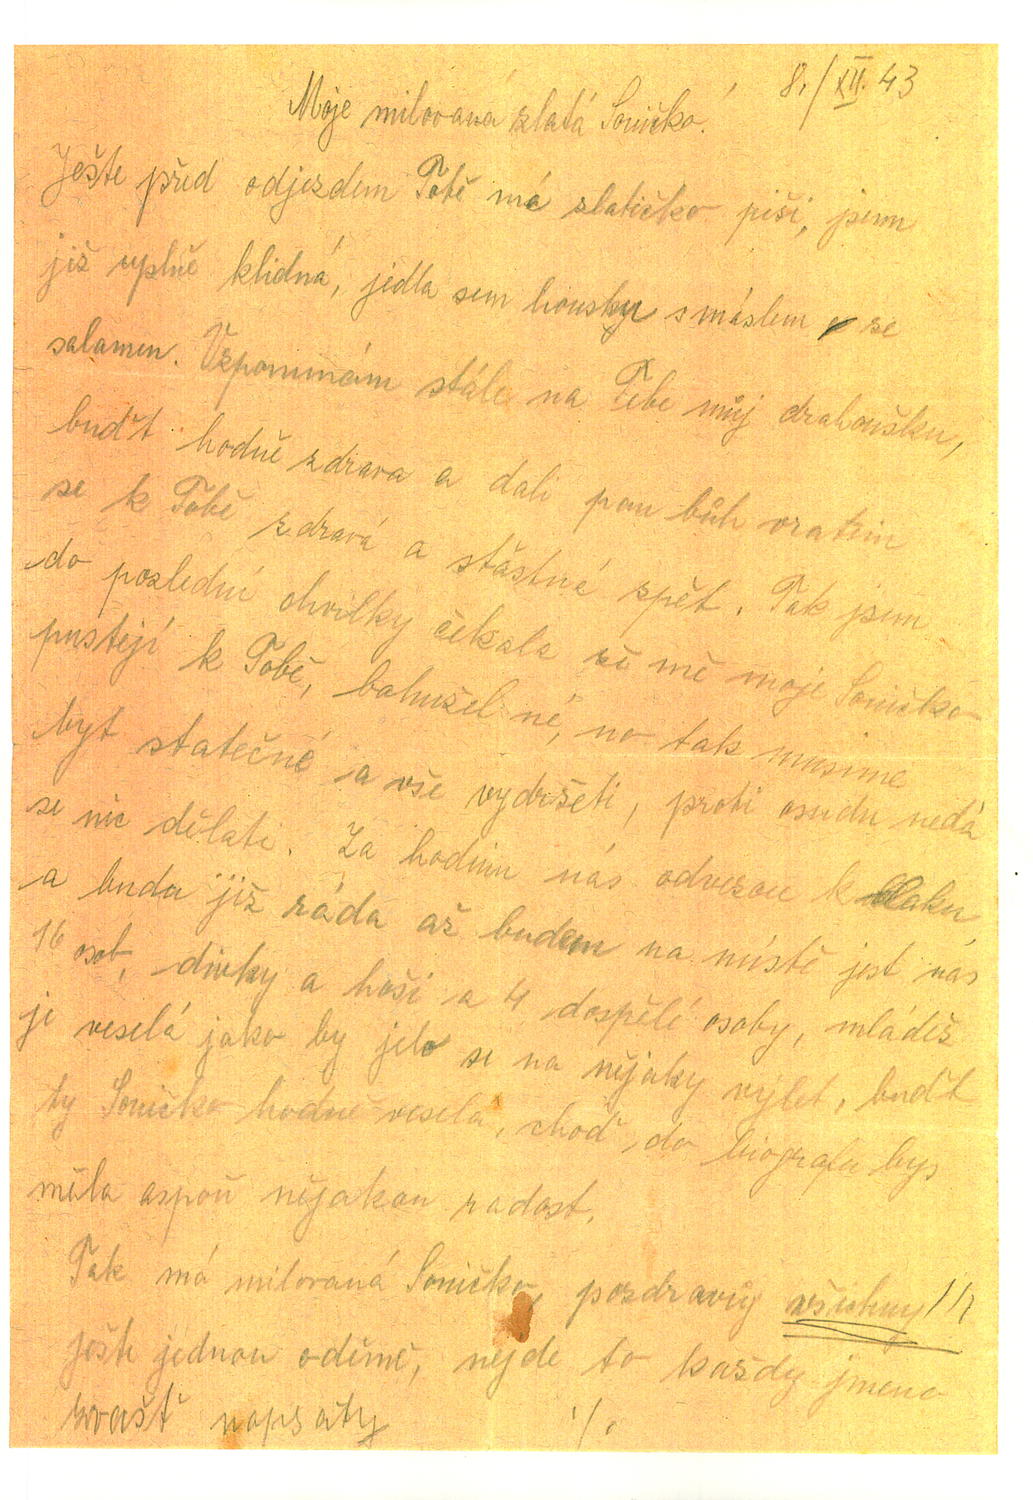 8./XII. 43
Moje milovaná zlatá Soničko!
Ješte před odjezdem Tobě má zlatičko piši, jsem
již uplně klidná, jedla sem housky s máslem a se
salamem. Vzpomínám stále na Tebe můj drahoušku,
buďt hodně zdrava a dali pan bůh vratim
se k Tobě zdravá a stástná zpět. Tak jsem
do poslední chvilky čekala že mě moje Soničko
pustejí k Tobě, bohužel né, no tak musime
byt statečné a vše vydržeti, proti osudu nedá
se nic dělati. Za hodinu nás odvezou k vlaku
a budu již ráda až budem na místě jest nás
16 osob, divky a hoši a 4 dospělé osoby, mláděž
je veselá jako by jelo se na nějaky výlet, buďt
ty Soničko hodně vesela, choď do biografu bys
měla aspoň nějakou radost.
Tak má milovaná Soničko, pozdravůj všichny!!!
ješte jednou odemě, nejde to každy jmeno
zvašť napsaty
./.